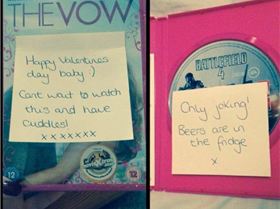 THE VOW
Happy Valentines
day baby :)
Cant wait to watch
this and have
cuddles!
xxxxxxx
12
12
BATTLEFIELD
4
Only joking!
Beers are in
the fridge
x